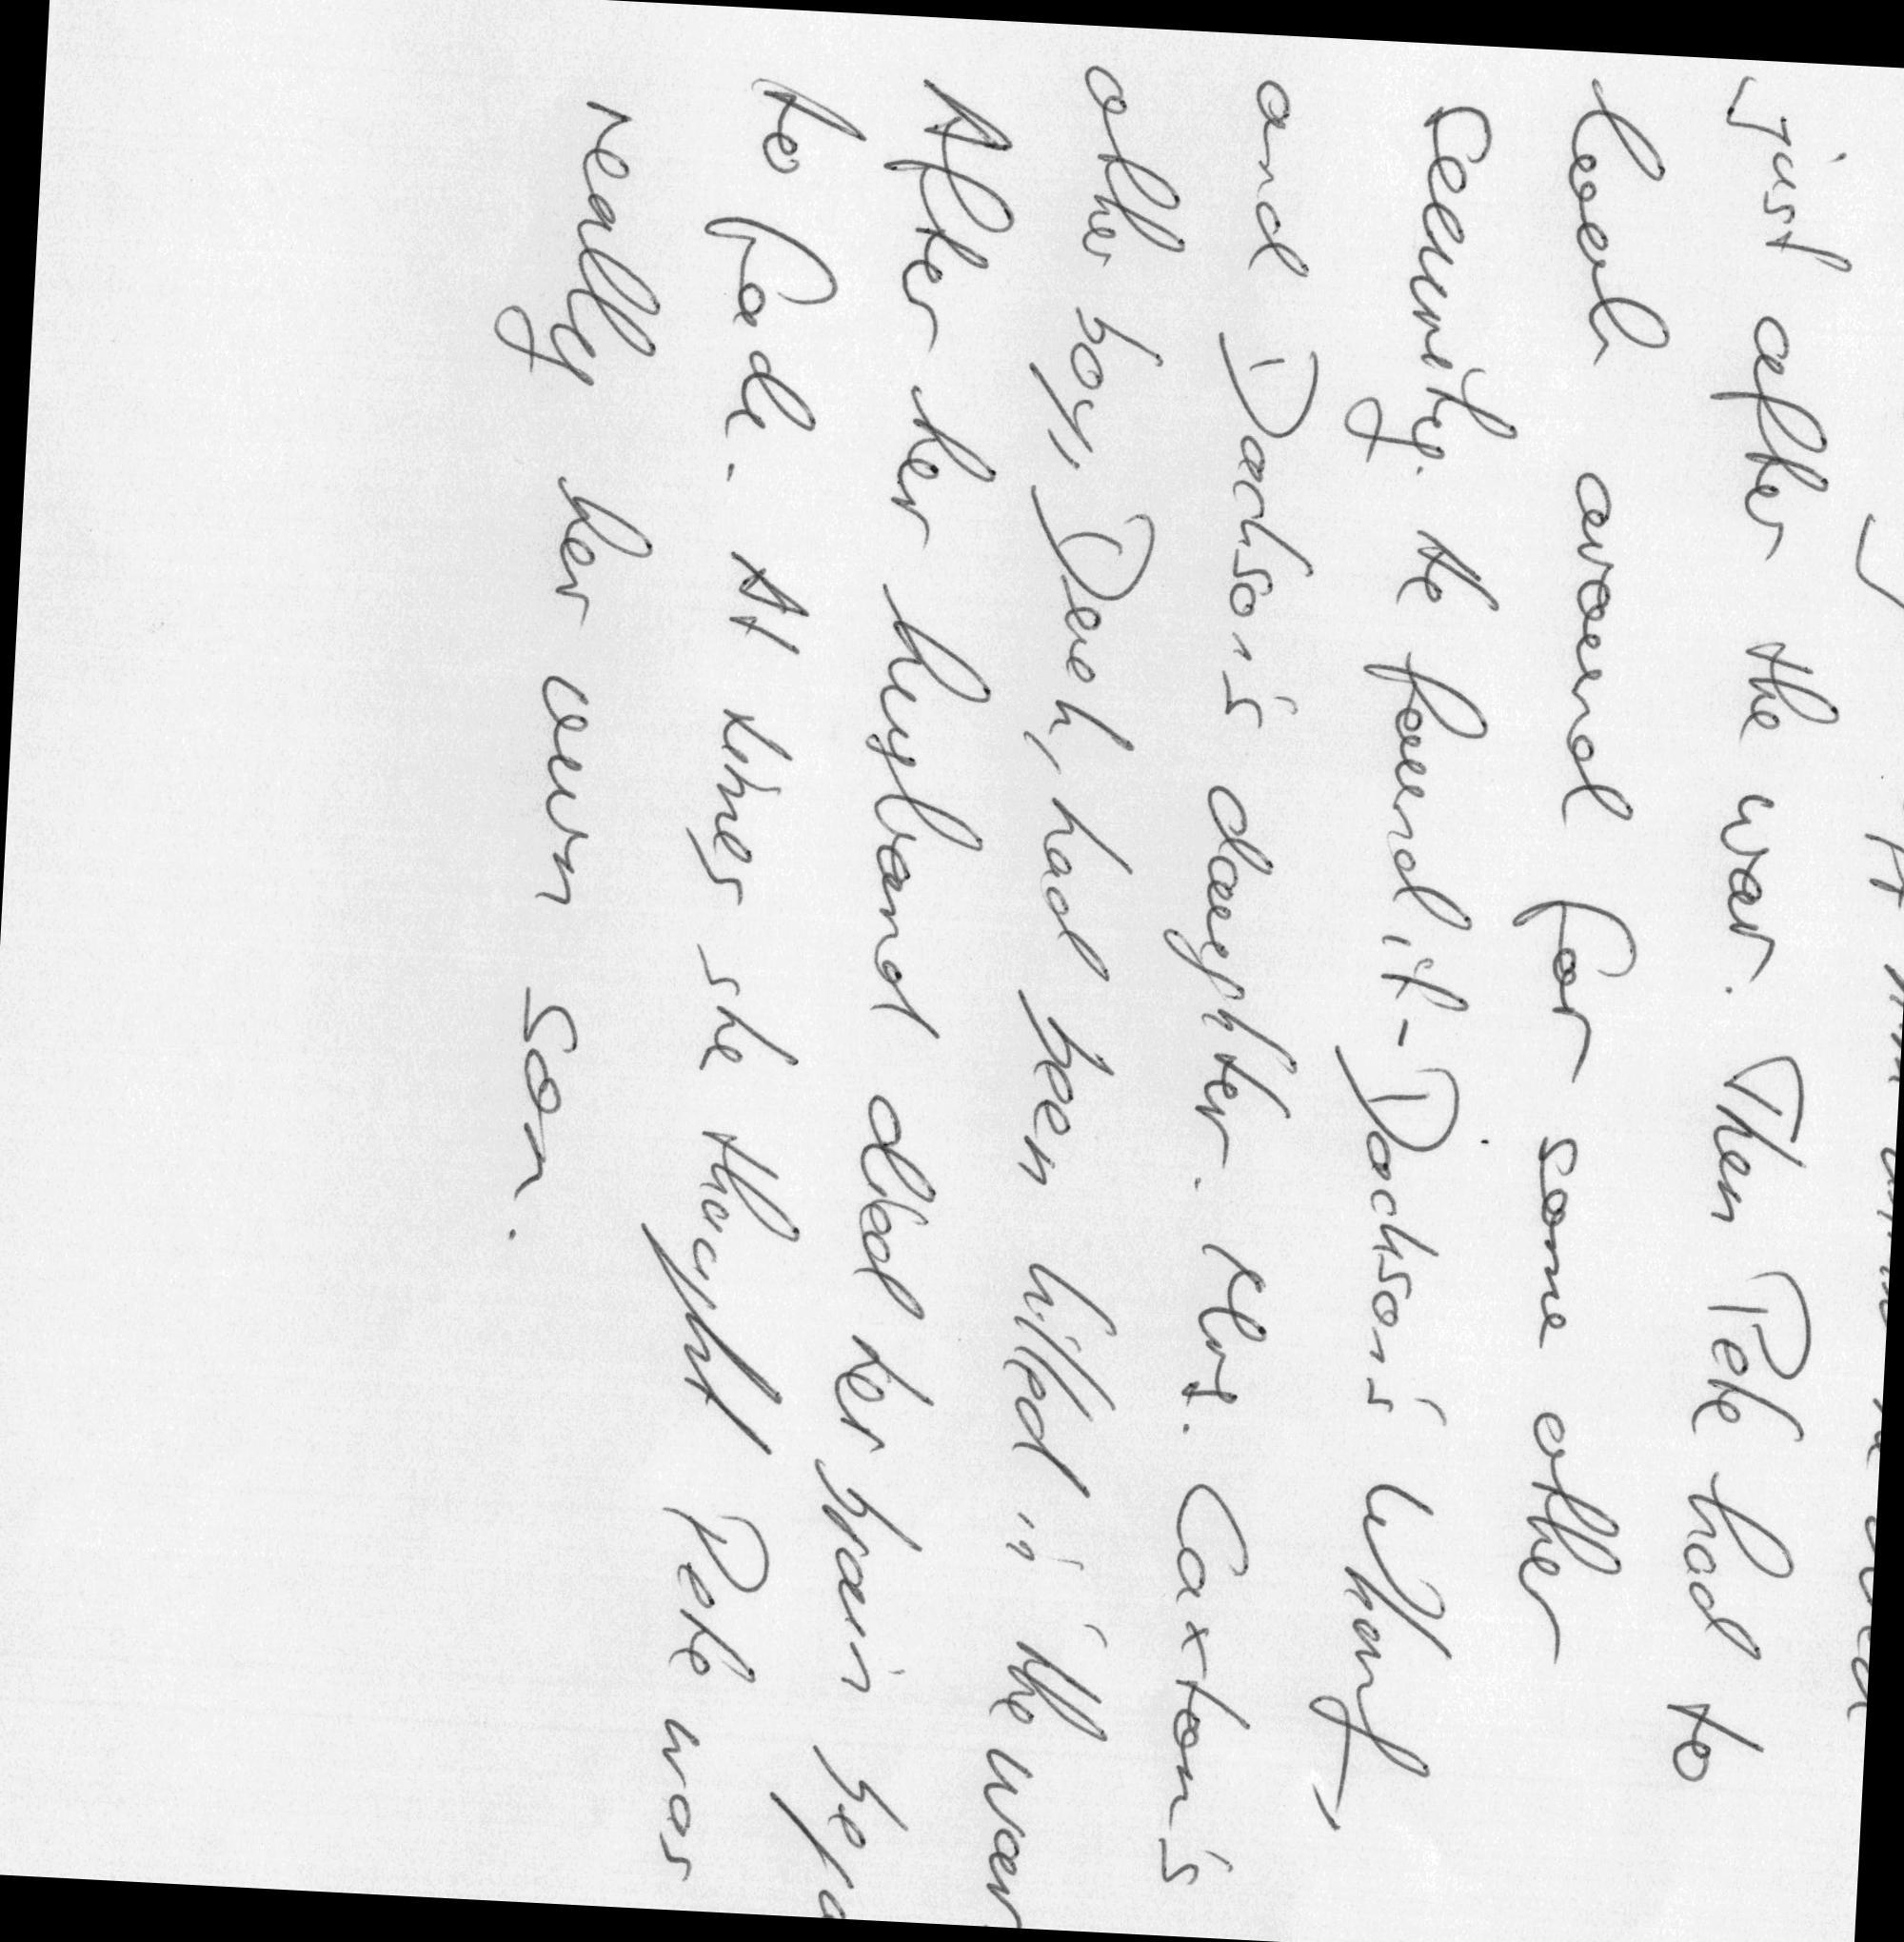 just after the war. Then Pete had to
look around for some other
security. He found it - Dodson's Wharf,
and Dodson's daughter. Mrs. Caxton's
other boy, Derek, had been killed in the war.
After her husband died her brain bega
to fade. At times she thought Pete was
really her own son.